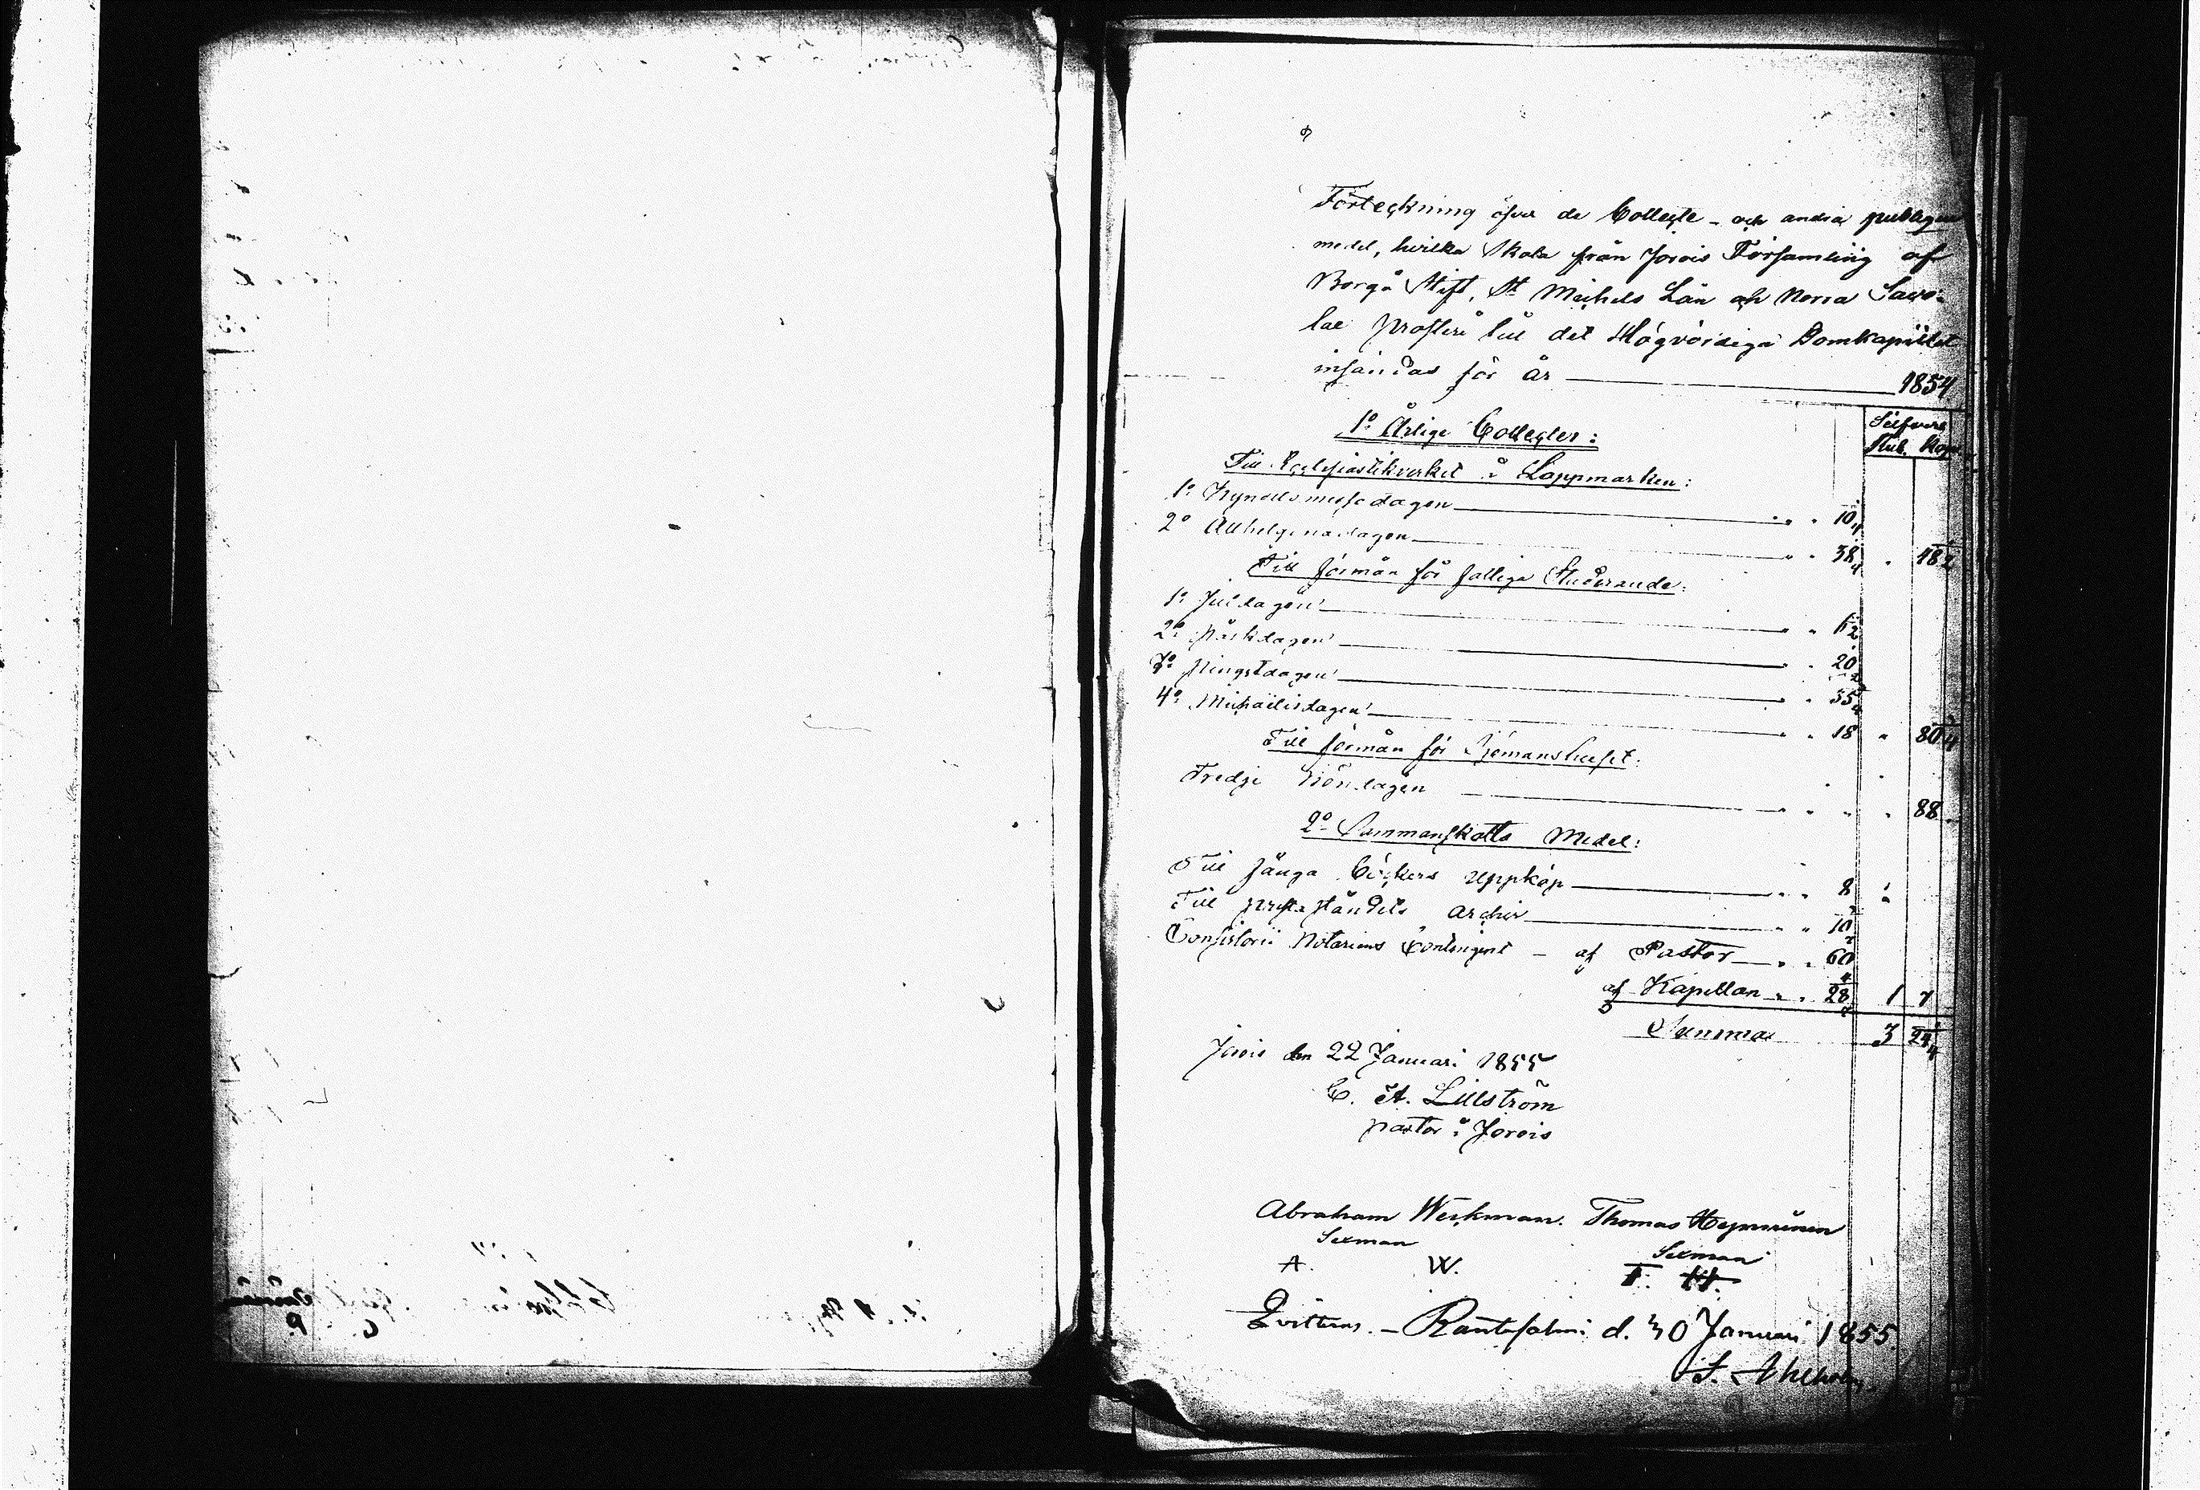 Förteckning öfver de Collecte- och andra publique
medel, hvilka skola från Jorois Församling af
Borgå Stift, St Michels Län och Norra Savo-
lax prosteri till det Högvördiga Domkapitlet
insändas för år 1854
Silfver
Rub. Kop.
1o Årlige Collecter:
Till Ecclesiastikverket i Lappmarken:
1o Kyndelsmessodagen 10
2o Allhelgonadagen 38 48
Till förmån för fattiga Studerande:
1o Juldagen
2o Påskdagen 20
3o Pingstdagen 35
4o Michaëlisdagen 18 80
Till förmån för Sjömanshuset:
Tredje Böndagen 88
2o Sammanskotts Medel:
Till fånga Böckers uppköp 8
Till presteståndets archiv 10
Consistorii Notariens Contingent - af Pastor 60
af Kapellan 28 1 7
Summa 3 24
Jorois den 22 Januari 1855
C. A. Lillström
pastor i Jorois
Abraham Weckman. Thomas
Sexman Sexman
A. W. T. H.
Qvitteras. - Rantasalmi d. 30 Januari 1855.